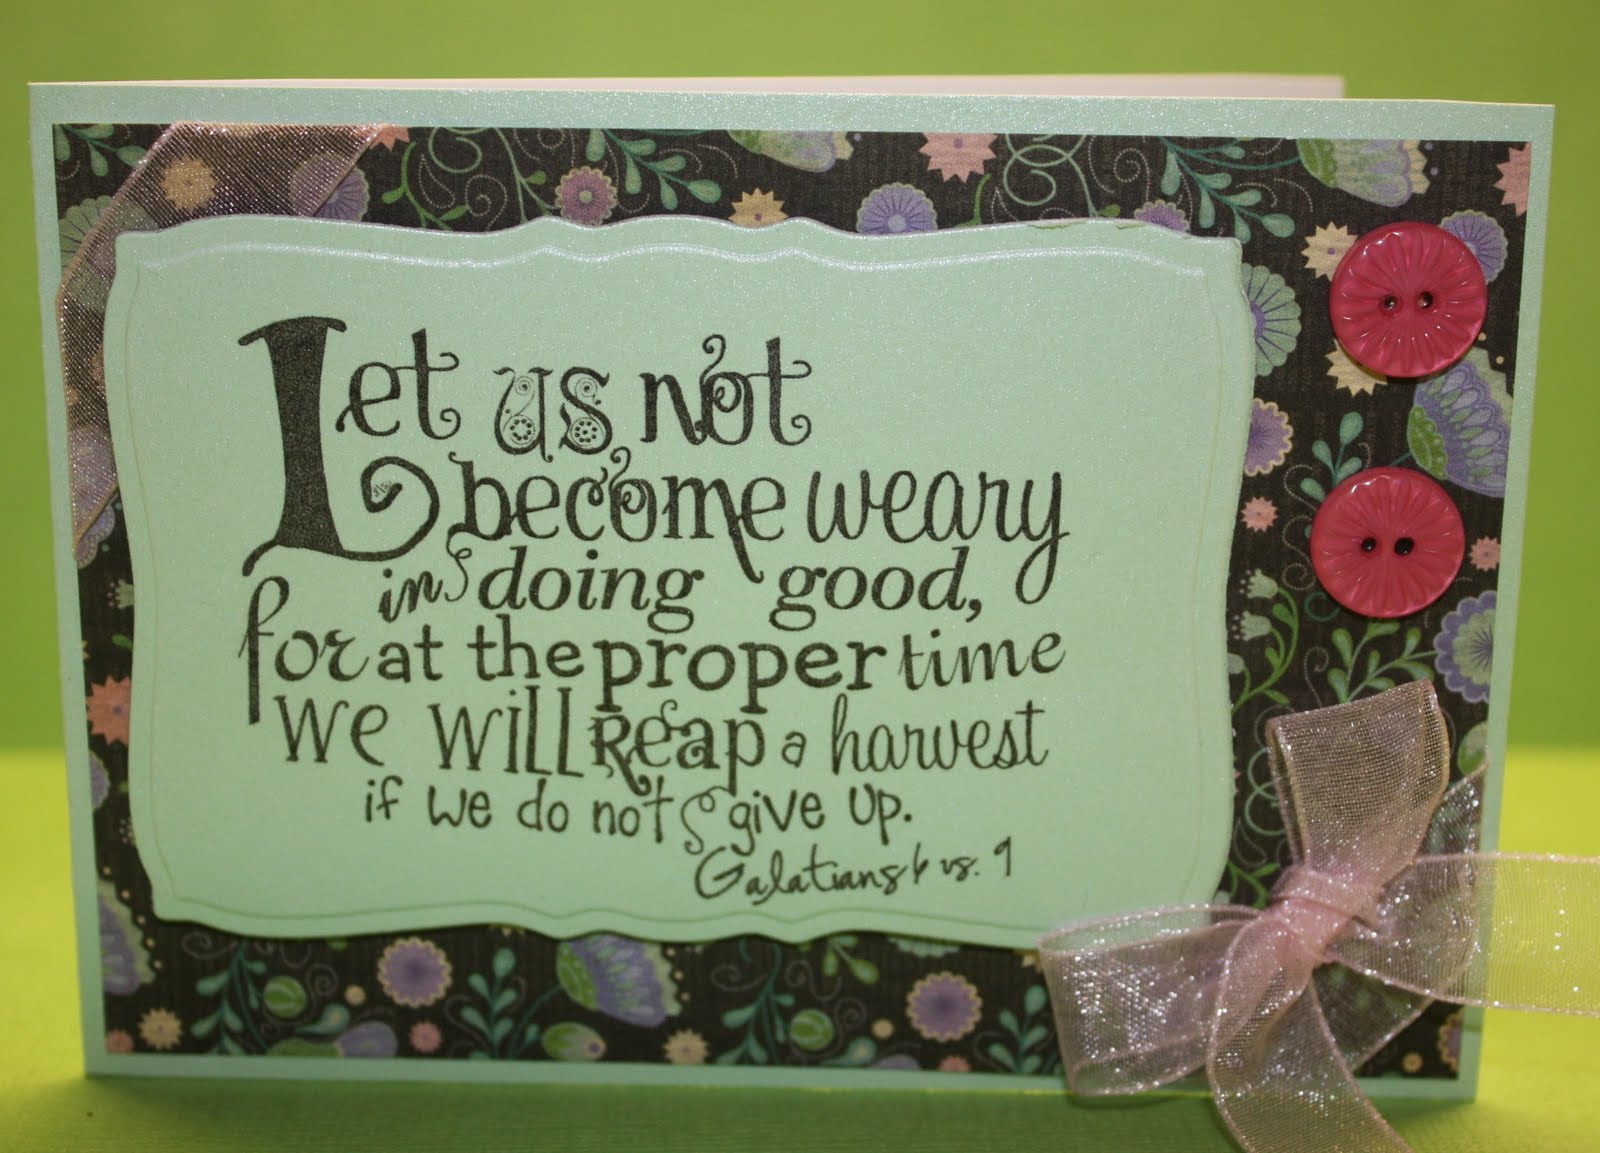 Let us not
become weary
in doing good,
for at the proper time
we will reap a harvest
if we do not give up.
Galatians 6 vs. 9